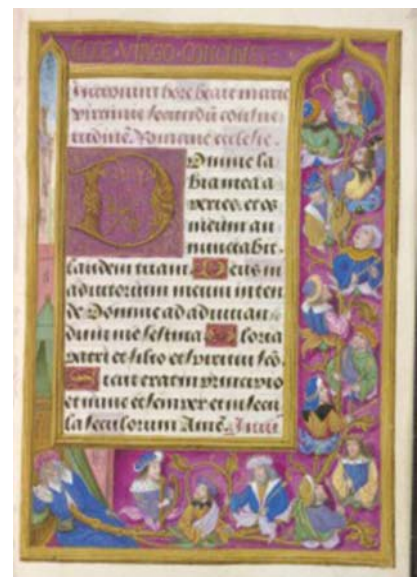 ECCE · VIRGO · CONCIPIET
Incipiunt hore beate marie
virginis secundū consue
tudinē Romane ecclesie.
Domine la
bia mea a
peries, et os
meum an
nunciabit
laudem tuam. Deus in
adiutorium meum inten
de Domine ad adiuuan
dum me festina Gloria
patri et filio et spiritui scō.
Sicut erat in principio
et nunc et semper et in secu
la seculorum Amē.